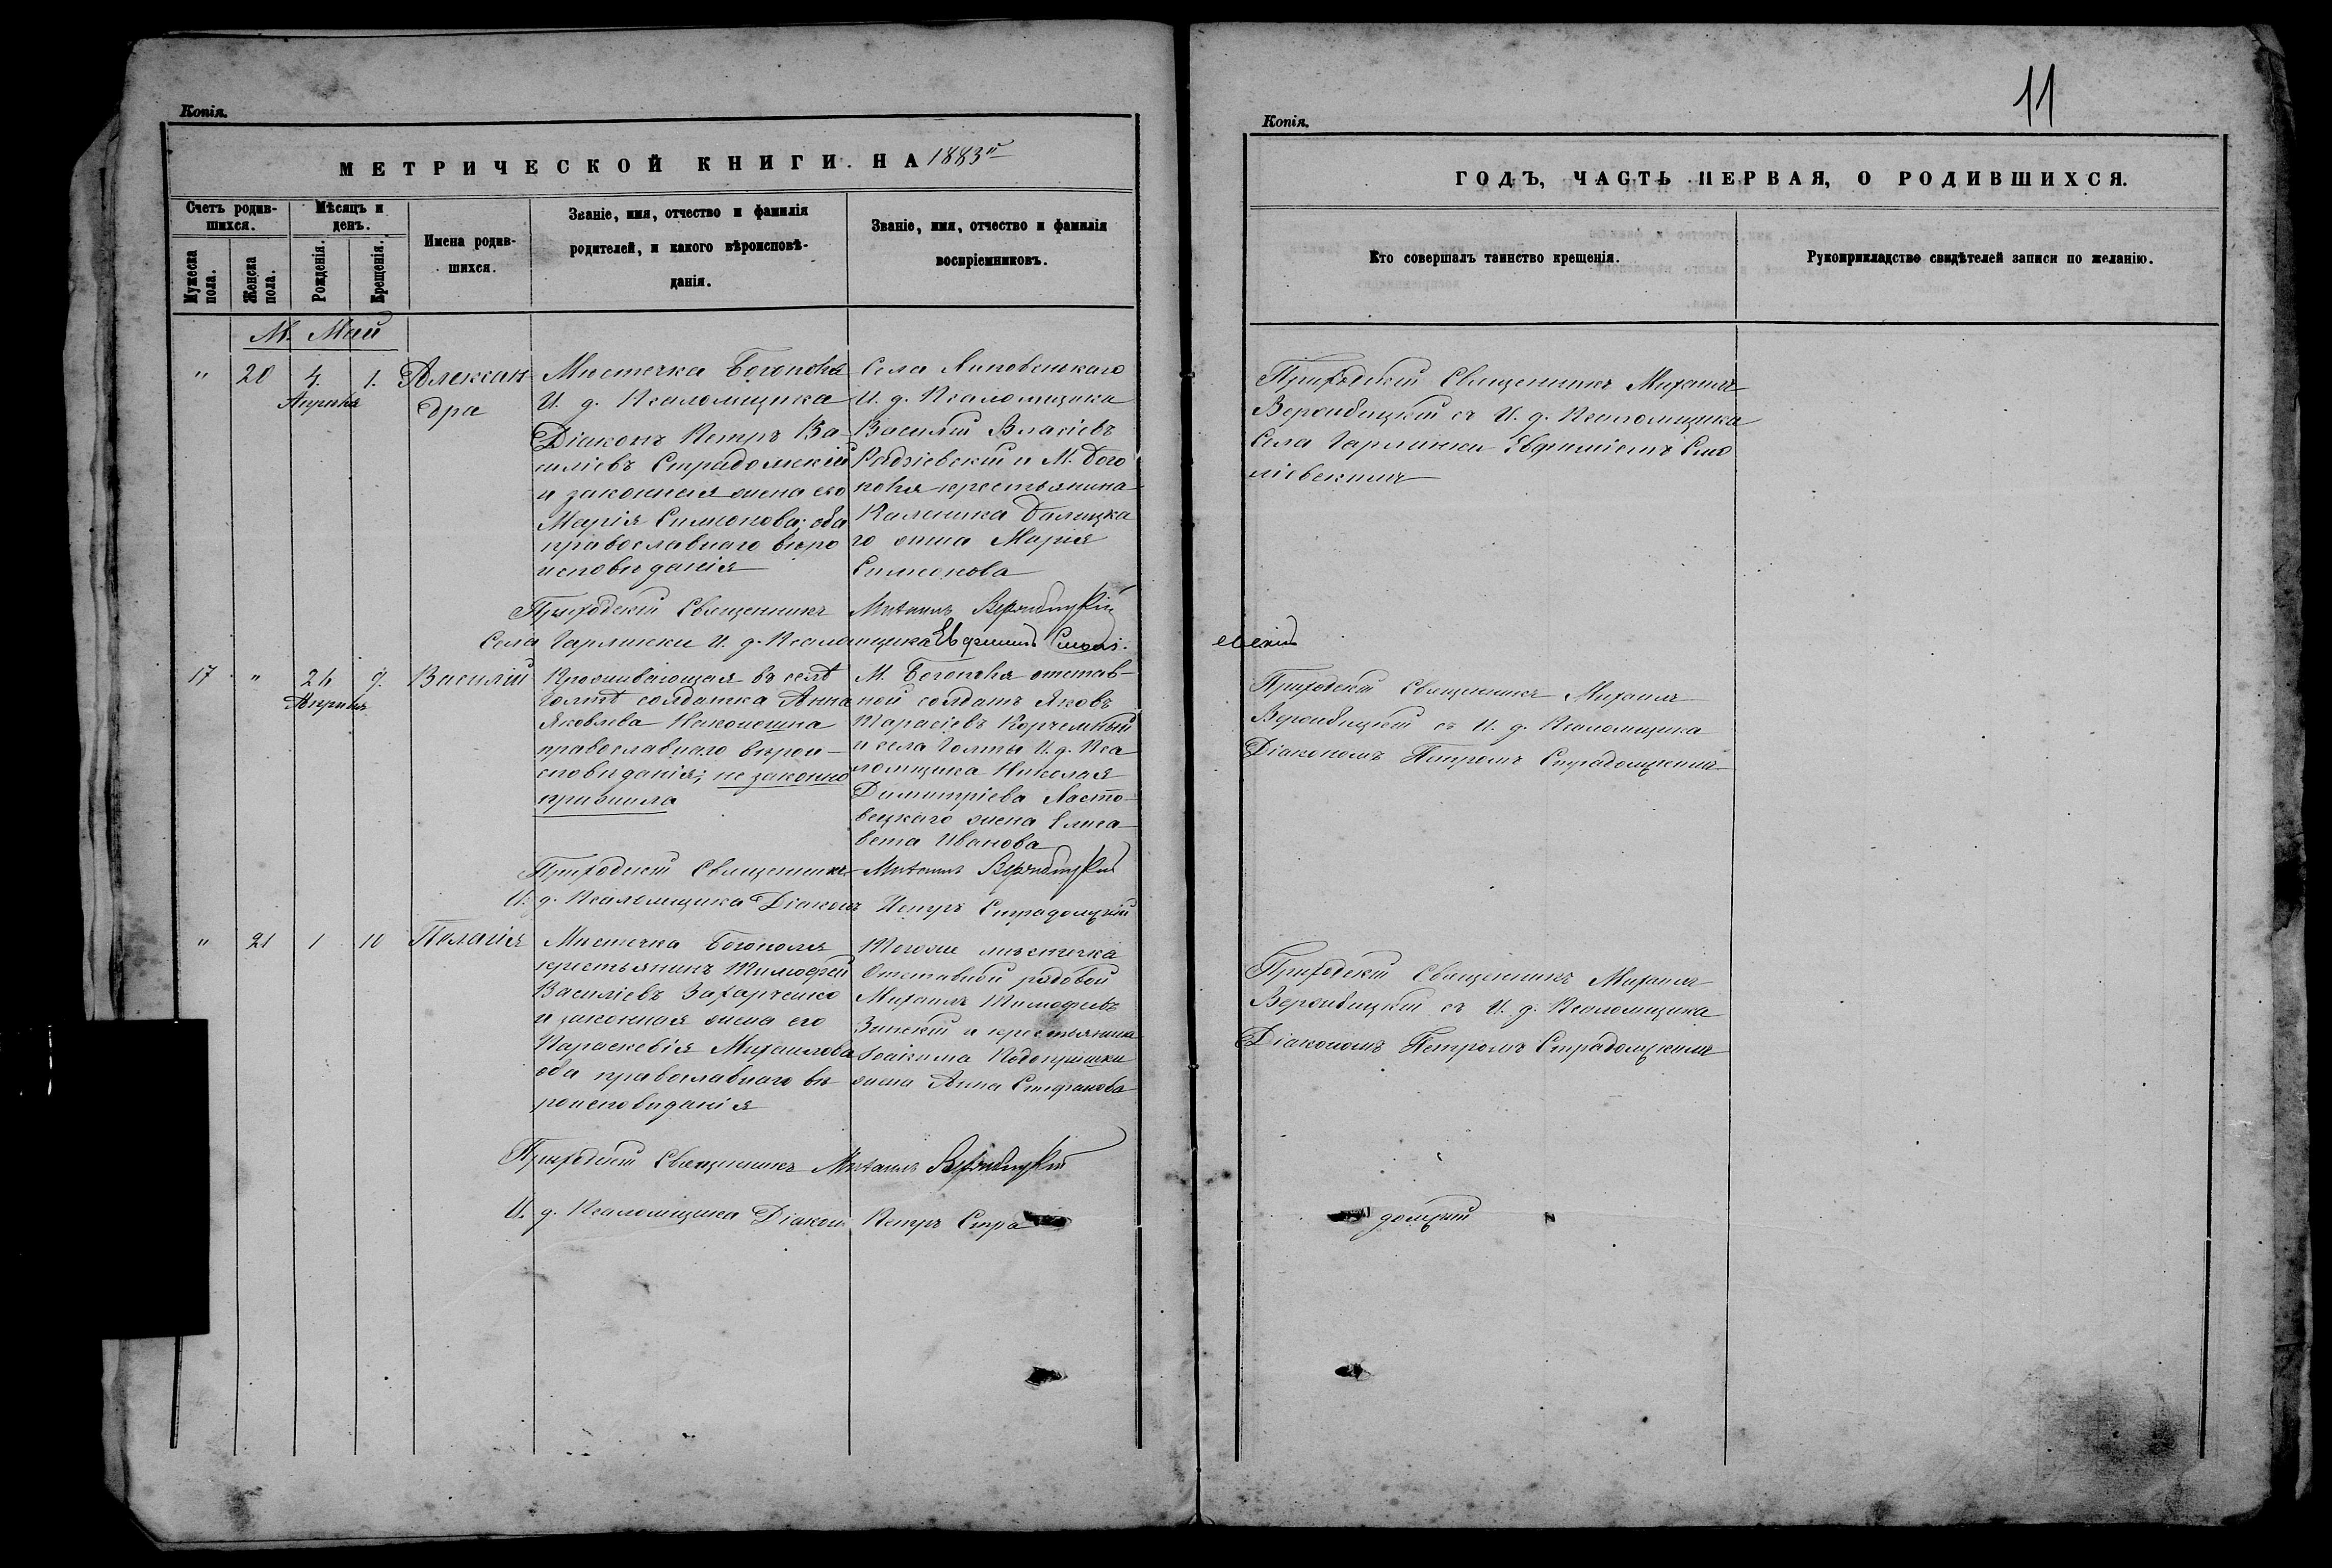 Копія.
МЕТРИЧЕСКОЙ КНИГИ НА 1883й
Счетъ родив-
шихся.
Мѣсяцъ и
день.
Мужеска
пола.
Женска
пола.
Рожденія.
Крещенія.
Имена родив-
шихся.
Званіе, имя, отчество и фамилія
родителей, и какого вѣроисповѣ-
данія.
Званіе, имя, отчество и фамилія
воспріемниковъ.
М. Май
" 20 4. 1. Алексан-
Апрѣля
дра
Мистечка Богополя
И. д. Псаломщика
Діаконъ Петръ Ва-
силіевъ Страдомскій
и законная жена его
Марія Симеонова; оба
православнаго вѣро
исповѣданія
Села Липовенькаго
И. д. Псаломщика
Василій Власіевъ
Радзіевскій и М. Бого
поля крестьянина
Каленика Далицка
го жена Марія
Симеонова
Приходскій Священникъ Михаилъ Вержбицкій
Села Гарлинки И. д. Псаломщика Евфимій Смолі-
17 " 26 9. Василій
Апрѣля
Проживающая въ селѣ
Голтѣ солдатка Анна
Яковлева
православнаго вѣрои-
сповѣданія; не законно
прижила
М. Богополя отстав-
ной солдатъ Яковъ
Тарасіевъ Корчемный
и села Голты И. д. Пса
ломщика Николая
Димитріева Ласто-
вецкаго жена Елиса
вета Иванова
Приходскій Священникъ Михаилъ Вержбицкій
И. д. Псаломщика Діаконъ Петръ Страдомскій
" 21 1 10 Пелагія
Мистечка Богополя
крестьянинъ Тимофей
Василіевъ Захарченко
и законная жена его
Параскевія Михаилова
оба православнаго вѣ
роисповѣданія
Тогоже мѣстечка
Отставной рядовой
Михаилъ Тимофеевъ
Зинскій и крестьянина
Іоакима
жена Анна Стефанова
Приходскій Священникъ Михаилъ Вержбицкій
И. д. Псаломщика Діаконъ Петръ Стра
11
Копія.
ГОДЪ, ЧАСТЬ ПЕРВАЯ, О РОДИВШИХСЯ.
Кто совершалъ таинство крещенія.
Рукоприкладство свидѣтелей записи по желанію.
Приходскій Священникъ Михаилъ
Вержбицкій съ И. д. Псаломщика
Села Гарлинки Евфиміемъ Смо
ліевскимъ
евскій
Приходскій Священникъ Михаилъ
Вержбицкій съ И. д. Псаломщика
Діакономъ Петромъ Страдомскимъ
Приходскій Священникъ Михаилъ
Вержбицкій съ И. д. Псаломщика
Діакономъ Петромъ Страдомскимъ
домскій